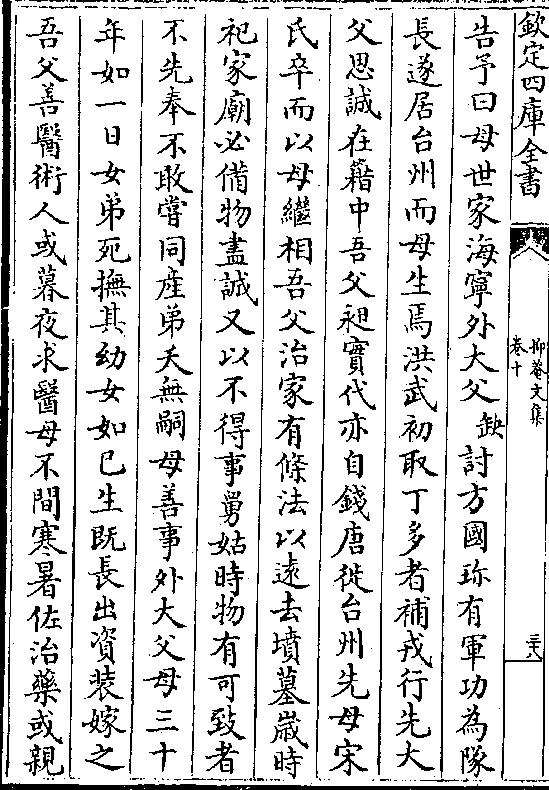 欽定四庫全書
抑菴文集
卷十
二六
告予曰母世家海寧外大父缺討方國珍有軍功為隊
長遂居台州而母生焉洪武初取丁多者補戎行先大
父思誠在籍中吾父昶實代亦自錢唐徙台州先母宋
氏卒而以母繼相吾父治家有條法以逺去墳墓嵗時
祀家廟必備物盡誠又以不得事舅姑時物有可致者
不先奉不敢嘗同産弟夭無嗣母善事外大父母三十
年如一日女弟死撫其幼女如已生既長出資裝嫁之
吾父善醫術人或暮夜求醫母不間寒暑佐治藥或親